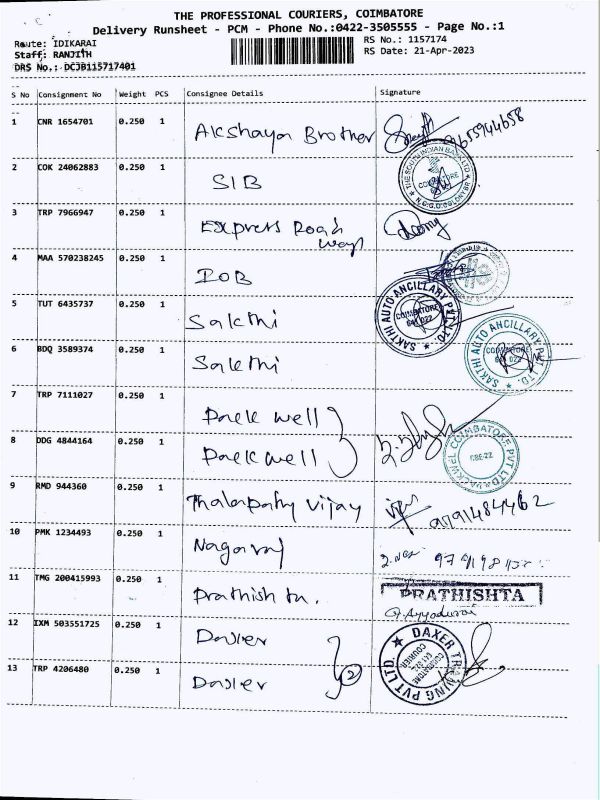 THE PROFESSIONAL COURIERS, COIMBATORE
Delivery Runsheet - PCM - Phone No.:0422-3505555 - Page No.:1
Route: IDIKARAI
RS No.: 1157174
Staff: RANJITH
RS Date: 21-Apr-2023
DRS No.: DCJB115717401
S No Consignment No Weight PCS Consignee Details Signature
1 CNR 1654701 0.250 1 Akshaya Brother 9655944658
2 COK 24062883 0.250 1 SIB
THE SOUTH INDIAN BANK LTD
COIMBATORE
N.G.G.O. COLONY BR
3 TRP 7966947 0.250 1 Express Road
ways
4 MAA 570238245 0.250 1 IOB
5 TUT 6435737 0.250 1 Sakthi
SAKTHI AUTO ANCILLARY PVT. LTD.
COIMBATORE
641 022
6 BDQ 3589374 0.250 1 Sakthi
SAKTHI AUTO ANCILLARY PVT. LTD.
COIMBATORE
641 022
7 TRP 7111027 0.250 1 Pack well
8 DDG 4844164 0.250 1 Pack well
COIMBATORE PVT LTD
CBE-22
9 RMD 944360 0.250 1 Thalapathy Vijay 9791484462
10 PMK 1234493 0.250 1 Nagaraj
11 TMG 200415993 0.250 1 Prathishtn.
PRATHISHTA
12 IXM 503551725 0.250 1 Daxer
13 TRP 4206480 0.250 1 Daxer 2
DAXER TRAINING PVT LTD
COIMBATORE
COURIER